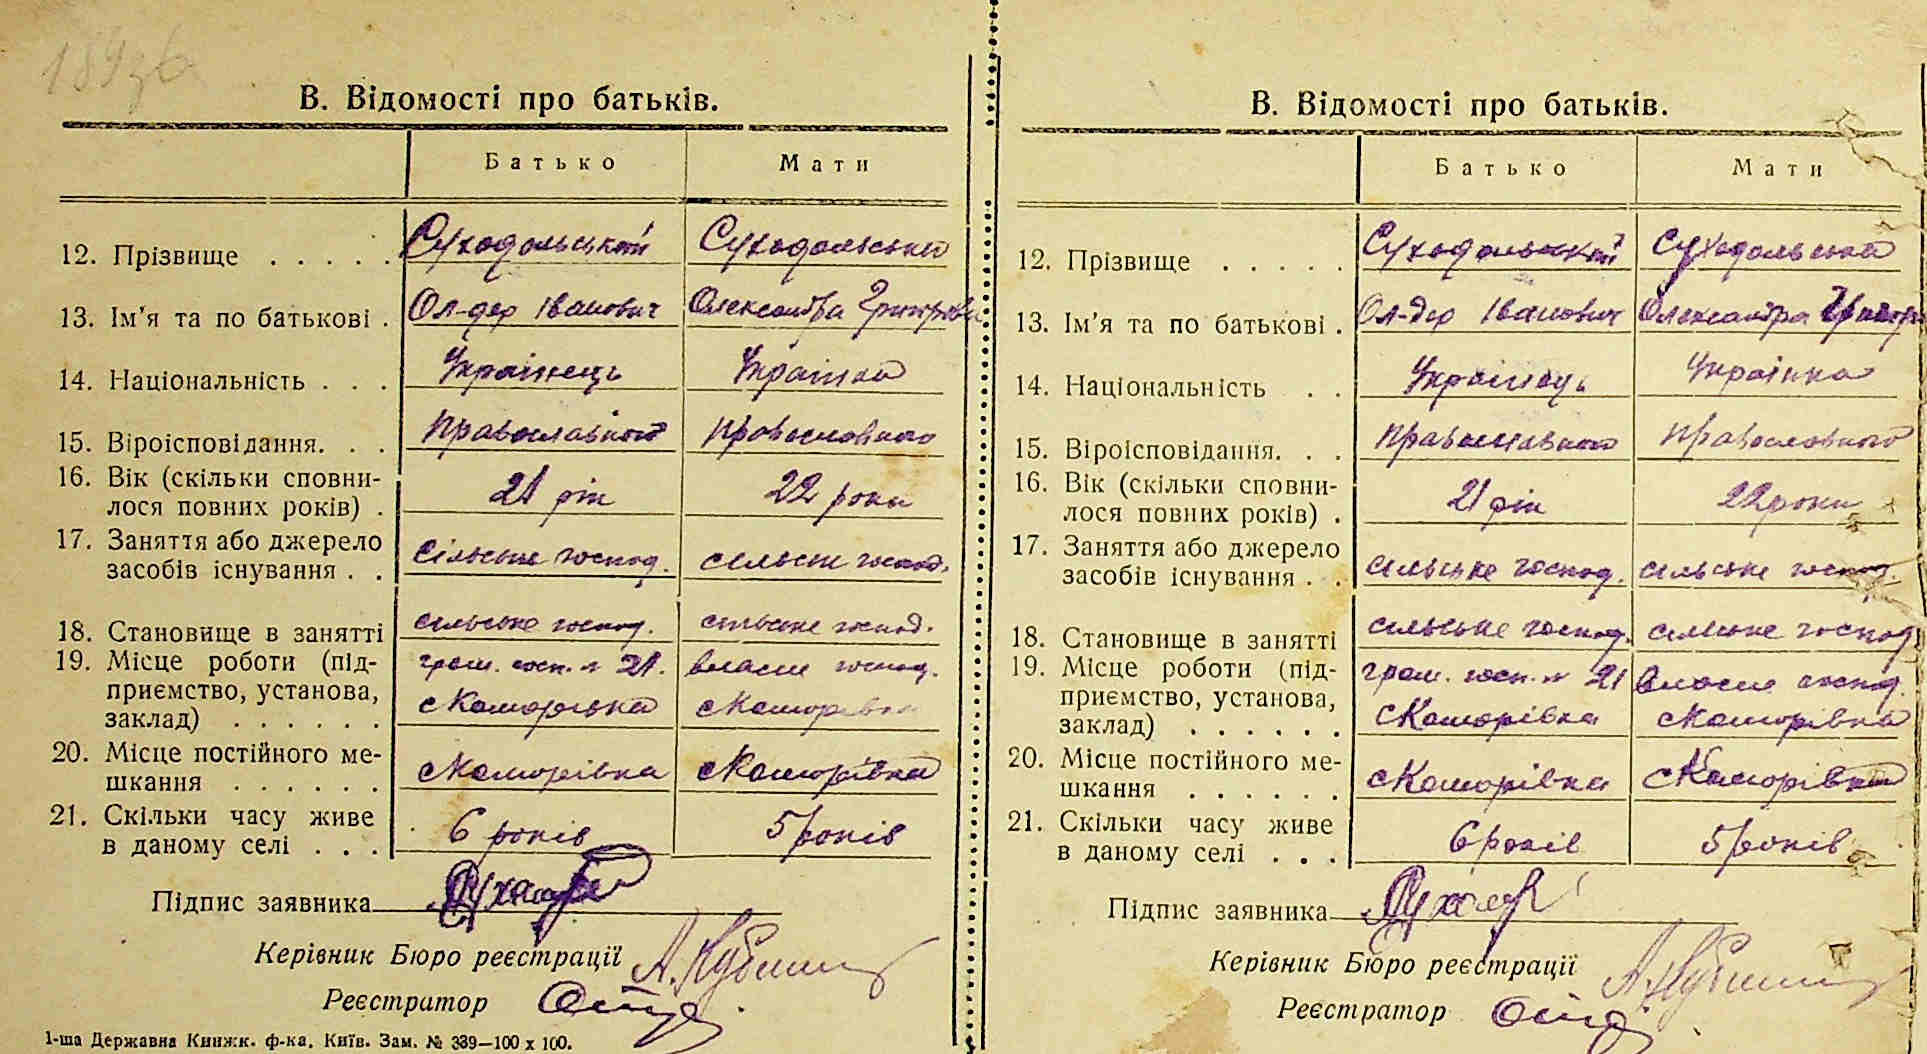 В. Відомості про батьків.
Батько Мати
12. Прізвище . . . . . Суходольський Суходольська
13. Ім'я та по батькові . Ол-дер Іванович Олександра
14. Національність . . . Українець Українка
15. Віроісповідання. . . Православного Православного
16. Вік (скільки сповни-
лося повних років) . 21 рік 22 роки
17. Заняття або джерело
засобів існування . . сільське господ. сільське господ.
18. Становище в занятті сільське господ. сільське господ.
19. Місце роботи (під- гром. госп. № 21. власне господ.
приємство, установа,
заклад) . . . . . . с Коморівка с Коморівка
20. Місце постійного ме-
шкання . . . . . . с Коморівка с Коморівка
21. Скільки часу живе
в даному селі . . . 6 років 5 років
Підпис заявника
Керівник Бюро реєстрації
Реєстратор
1-ша Державна Книжк. ф-ка. Київ. Зам. № 339—100 х 100.
В. Відомості про батьків.
Батько Мати
12. Прізвище . . . . . Суходольський Суходольська
13. Ім'я та по батькові . Ол-дер Іванович Олександра
14. Національність . . Українець Українка
15. Віроісповідання. . . Православного Православного
16. Вік (скільки сповни-
лося повних років) . 21 рік 22 роки
17. Заняття або джерело
засобів існування . . сільське господ. сільське господ.
18. Становище в занятті сільське господ. сільське господ.
19. Місце роботи (під- гром. госп. № 21 власне господ.
приємство, установа,
заклад) . . . . . . с Коморівка с Коморівка
20. Місце постійного ме-
шкання . . . . . . с Коморівка с Коморівка
21. Скільки часу живе
в даному селі . . . 6 років 5 років
Підпис заявника
Керівник Бюро реєстрації
Реєстратор